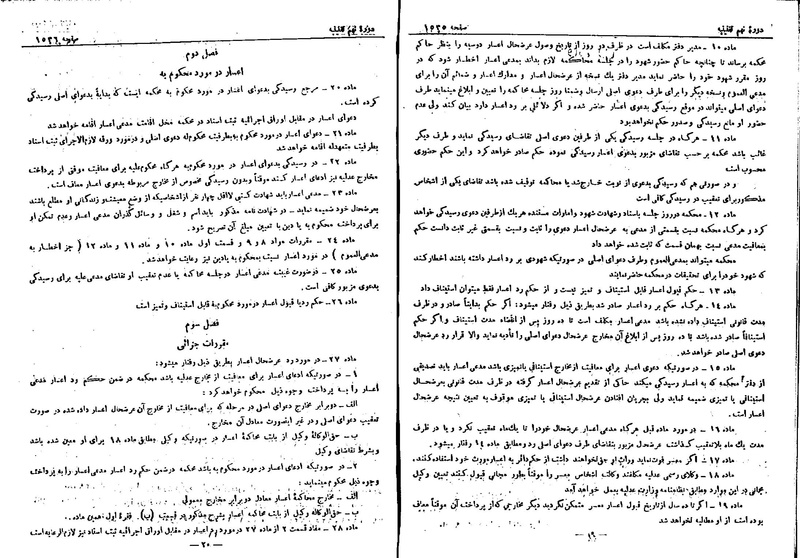 دورهٔ نهم تقنینیه
صفحه ۱۵۳۵
ماده ۱۰ – مدیر دفتر مکلف است در ظرف دو روز از تاریخ وصول عرضحال اعسار دوسیه را بنظر حاکم
محکمه برساند تا چنانچه حاکم حضور شهود را در جلسه محاکمه لازم بداند بمدعی اعسار اخطار شود که در
روز مقرر شهود خود را حاضر نماید مدیر دفتر یک نسخه از عرضحال اعسار و مدارک اعسار و ضمائم آن را برای
مدعی العموم و نسخه دیگر را برای طرف دعوی اصلی ارسال و ضمناً روز جلسه محاکمه را تعیین و ابلاغ مینماید طرف
دعوای اصلی میتواند در موقع رسیدگی بدعوی اعسار حاضر شده و اگر دلائلی بر رد اعسار دارد بیان کند ولی عدم
حضور او مانع رسیدگی و صدور حکم نخواهد بود
ماده ۱۱ – هرگاه در جلسه رسیدگی یکی از طرفین دعوی اصلی تقاضای رسیدگی نماید و طرف دیگر
غائب باشد محکمه بر حسب تقاضای مزبور بدعوی اعسار رسیدگی نموده حکم صادر خواهد کرد و این حکم حضوری
محسوب است
و در صورتی هم که رسیدگی بدعوای اعسار از نوبت خارج شد یا محاکمه توقیف شده باشد تقاضای یکی از اشخاص
مذکور برای تعقیب در رسیدگی کافی است
ماده ۱۲ – محکمه در روز جلسه باسناد و شهادت شهود و امارات مستنده هر یک از طرفین دعوی رسیدگی خواهد
کرد و هرگاه محکمه نسبت بقسمتی از مدعی به دعوی اعسار را ثابت و نسبت بقسمتی غیر ثابت دانست حکم
بمعافیت مدعی نسبت بهمان قسمت که ثابت شده خواهد داد
محکمه میتواند بمدعی العموم و طرف دعوای اصلی در صورتیکه شهودی بر رد اعسار داشته باشند اخطار کنند
که شهود خود را برای تحقیقات در محکمه حاضر نمایند
ماده ۱۳ – حکم قبول اعسار قابل استیناف و تمیز نیست و از حکم رد اعسار فقط میتوان استیناف داد
ماده ۱۴ – هرگاه حکم بر رد اعسار صادر شد بطریق ذیل رفتار میشود: اگر حکم بدایتاً صادر و در ظرف
مدت قانونی استیناف داده نشده باشد مدعی اعسار مکلف است تا ده روز پس از انقضاء مدت استیناف و اگر حکم
استینافاً صادر شده باشد تا ده روز پس از ابلاغ آن مخارج عرضحال دعوای اصلی را تأدیه نماید والا قرار رد عرضحال
دعوی اصلی صادر خواهد شد.
ماده ۱۵ – در صورتیکه دعوی اعسار برای معافیت از مخارج استینافی یا تمیزی باشد مدعی اعسار باید تصدیقی
از دفتر محکمه که به اعسار رسیدگی میکند حاکی از تقدیم عرضحال اعسار گرفته در ظرف مدت قانونی بعرضحال
استینافی یا تمیزی ضمیمه نماید ولی بجریان افتادن عرضحال استینافی یا تمیزی موقوف به تعیین نتیجه عرضحال
اعسار است.
ماده ۱۶ – در مورد ماده قبل هرگاه مدعی اعسار عرضحال خود را تا یک ماه تعقیب نکرد و یا در ظرف
مدت یک ماه بلا تعقیب گذاشت عرضحال مزبور بتقاضای طرف دعوای اصلی رد و مطابق ماده ۱۴ رفتار میشود.
ماده ۱۷ – اگر معسر فوت نماید وراث او حق نخواهند داشت از حکم دائر به اعسار مورث خود استفاده کنند.
ماده ۱۸ – وکلای رسمی عدلیه مکلفند وکالت اشخاص معسر را موقتاً بطور مجانی قبول کنند تعیین وکیل
مجانی در این موارد مطابق نظامنامه وزارت عدلیه بعمل خواهد آمد
ماده ۱۹ – اگر تا ده سال از تاریخ قبول اعسار معسر متمکن نگردید دیگر مخارجی که از پرداخت آن موقتاً معاف
بوده است از او مطالبه نخواهد شد
دورهٔ نهم تقنینیه
صفحه ۱۵۳۶
فصل دوم
اعسار در مورد محکوم به
ماده ۲۰ – مرجع رسیدگی بدعوای اعسار در مورد محکوم به محکمه ایست که بدایة بدعوای اصلی رسیدگی
کرده است.
دعوای اعسار در مقابل اوراق اجرائیه ثبت اسناد در محکمه محل اقامت مدعی اعسار اقامه خواهد شد
ماده ۲۱ – دعوای اعسار در مورد محکوم به بطرفیت محکوم له دعوی اصلی و در مورد ورقه لازم الاجرای ثبت اسناد
بطرفیت متعهد له اقامه خواهد شد
ماده ۲۲ – در رسیدگی بدعوای اعسار در مورد محکوم به هرگاه محکوم علیه برای معافیت موقتی از پرداخت
مخارج عدلیه نیز ادعای اعسار کند موقتاً و بدون رسیدگی مخصوص از مخارج مربوطه بدعوی اعسار معاف است.
ماده ۲۳ – مدعی اعسار باید شهادت کتبی لااقل چهار نفر از اشخاصیکه از وضع معیشت و زندگانی او مطلع باشند
بعرضحال خود ضمیمه نماید – در شهادت نامه مذکور باید اسم و شغل و وسائل گذران مدعی اعسار و عدم تمکن او
برای پرداخت محکوم به یا دین با تعیین مبلغ آن تصریح شود.
ماده ۲۴ – مقررات مواد ۸ و ۹ و قسمت اول ماده ۱۰ و ماده ۱۱ و ماده ۱۲ ( جز اخطار به
مدعی العموم ) در مورد اعسار نسبت بمحکوم به یا دین نیز رعایت خواهد شد.
ماده ۲۵ – در صورت غیبت مدعی اعسار در جلسه محاکمه یا عدم تعقیب او تقاضای مدعی علیه برای رسیدگی
بدعوی مزبور کافی است.
ماده ۲۶ – حکم رد یا قبول اعسار در مورد محکوم به قابل استیناف و تمیز است
فصل سوم
مقررات جزائی
ماده ۲۷ – در مورد رد عرضحال اعسار بطریق ذیل رفتار میشود:
۱ – در صورتیکه ادعای اعسار برای معافیت از مخارج عدلیه باشد محکمه در ضمن حکم رد اعسار مدعی
اعسار را به پرداخت وجوه ذیل محکوم خواهد کرد:
الف – دو برابر مخارج دعوای اصلی در مرحله که برای معافیت از مخارج آن عرضحال اعسار داده شده در صورت
تعقیب دعوای اصلی و در غیر اینصورت معادل آن مخارج.
ب – حق الوکاله وکیل از بابت محاکمه اعسار در صورتیکه وکیلی مطابق ماده ۱۸ برای او معین شده باشد
و بشرط تقاضای وکیل
۲ – در صورتیکه ادعای اعسار در مورد محکوم به باشد محکمه در ضمن حکم رد اعسار مدعی اعسار را به پرداخت
وجوه ذیل محکوم مینماید:
الف – مخارج محاکمهٔ اعسار معادل دو برابر مخارج معمولی
ب – حق الوکاله وکیل از بابت محاکمه اعسار بشرح مذکور در قسمت (ب) فقرهٔ اول همین ماده.
ماده ۲۸ – مفاد قسمت ۲ از ماده ۲۷ در مورد رد اعسار در مقابل اوراق اجرائیه ثبت اسناد نیز لازم الرعایه است
– ۲۰ –